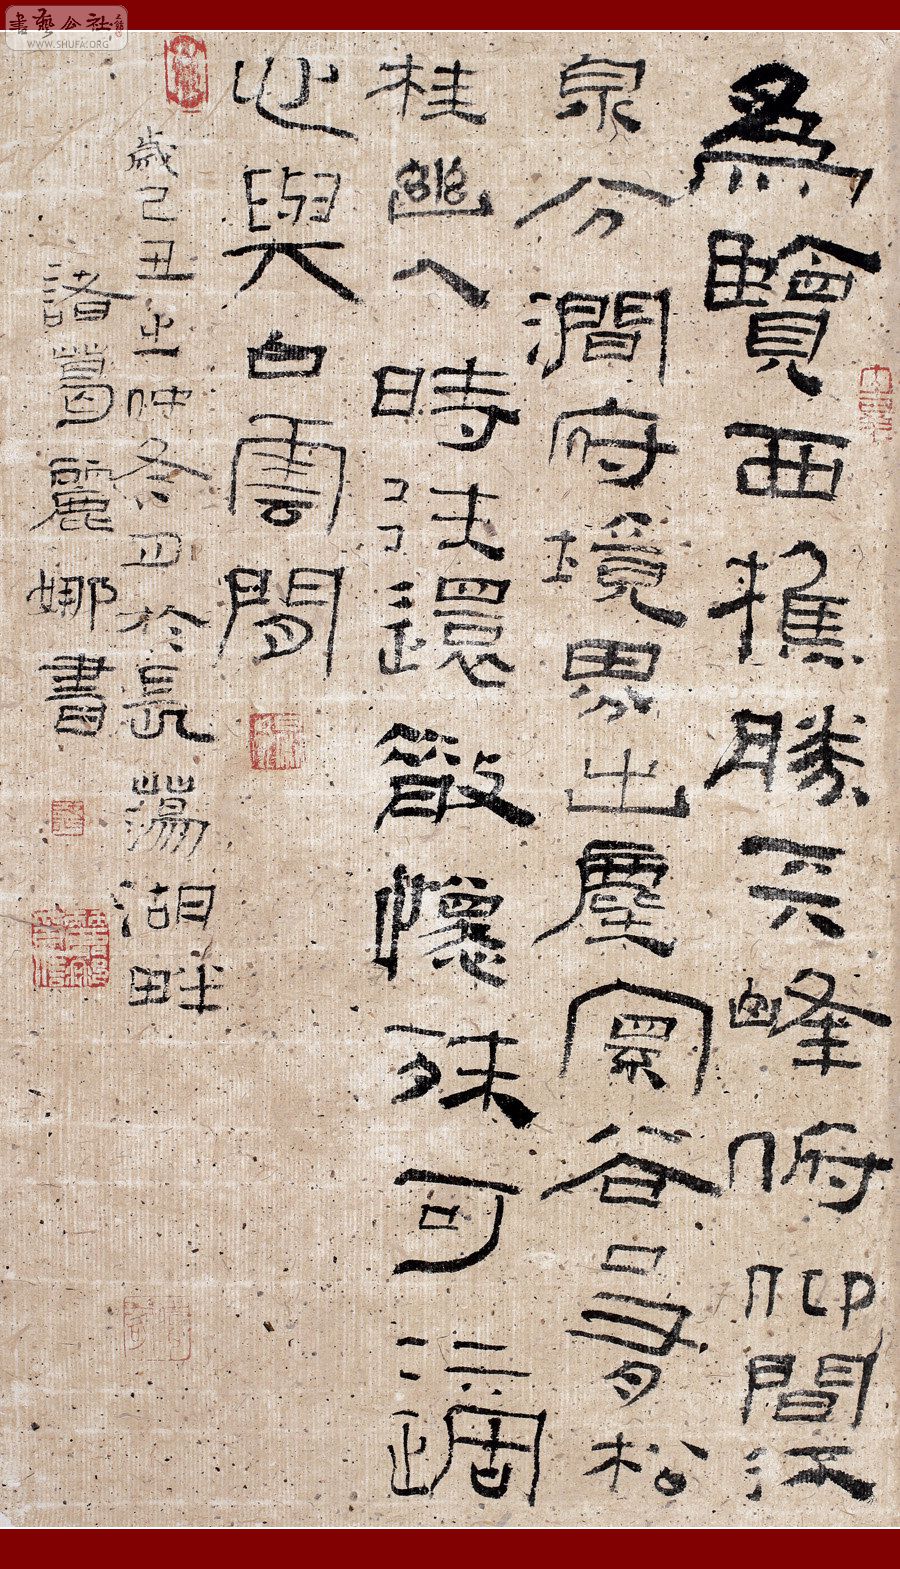 書藝公社
WWW.SHUFA.ORG
為覽西樵勝天峰俯仰間
泉分澗府境界出塵寰谷口多松
桂幽人時往還散懷殊可適
心與白雲閒
歲己丑之仲冬月於長蕩湖畔
諸葛麗娜書